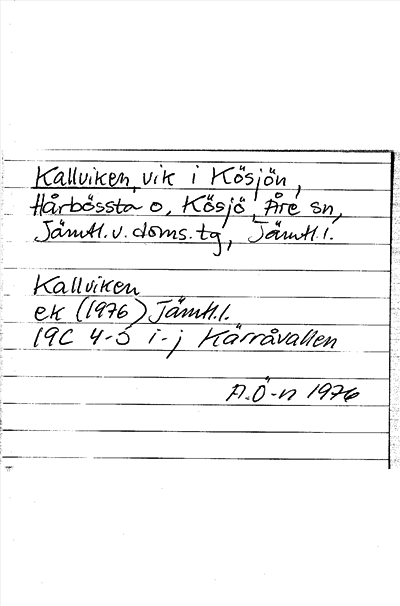 Kallviken, vik i Kösjön,
Hårbössta o, Kösjö, Åre sn,
Jämtl. v. doms. tg, Jämtl. l.
Kallviken
ek (1976) Jämtl. l.
19C 4-5 i-j Kärråvallen
A. Ö-n 1976